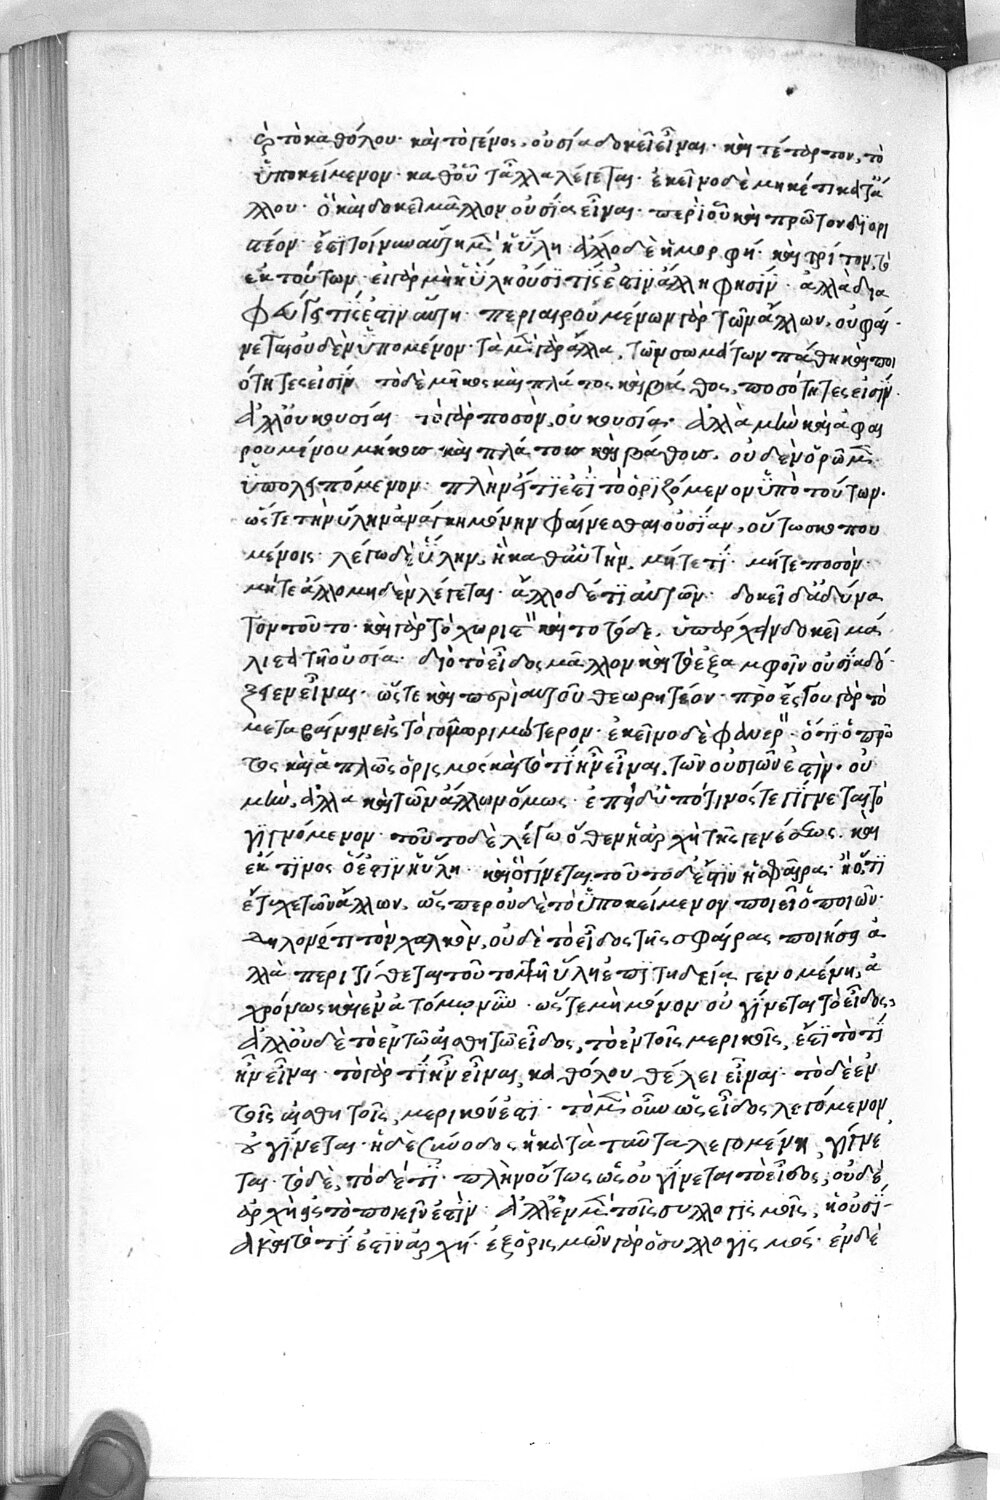 ὃ τὸ καθόλου· καὶ τὸ γένος, οὐσία δοκεῖ εἶναι· καὶ τέταρτον, τὸ
ὑποκείμενον· καθ' οὗ τἆλλα λέγεται· ἐκεῖνο δὲ μηκέτι κατ' ἄ
λλου· ὃ καὶ δοκεῖ μᾶλλον οὐσία εἶναι· περὶ οὗ καὶ πρῶτον διορι
στέον· ἔστι τοίνυν αὕτη μὲν ἡ ὕλη ἄλλο δὲ ἡ μορφή· καὶ τρίτον, τὸ
ἐκ τούτων· εἰ γὰρ μὴ ἡ ὕλη οὐσία τίς ἐστιν ἄλλη φησίν· ἀλλὰ δια
φεύγει τίς ἐστὶν αὕτη· περιαιρουμένων γὰρ τῶν ἄλλων, οὐ φαί
νεται οὐδὲν ὑπομένον· τὰ μὲν γὰρ ἄλλα, τῶν σωμάτων πάθη καὶ ποι
ότητες εἰσίν τὸ δὲ μῆκος καὶ πλάτος καὶ βάθος, ποσότητες εἰσίν·
ἀλλ' οὐκ οὐσίαι τὸ γὰρ ποσὸν, οὐκ οὐσία· ἀλλὰ μὴν καὶ ἀφαι
ρουμένου μήκους καὶ πλάτους καὶ βάθους, οὐδὲν ὁρῶμεν
ὑπολειπόμενον· πλὴν εἴ τι ἐστὶ τὸ ὁριζόμενον ὑπὸ τούτων·
ὥστε τὴν ὕλην ἀνάγκη μόνην φαίνεσθαι οὐσίαν, οὕτω σκοπου
μένοις· λέγω δὲ ὕλην, ἣ καθ' αὑτὴν, μήτε τί· μήτε ποσὸν·
μήτε ἄλλο μηδὲν λέγεται· ἄλλο δέ τι αὐτῶν· δοκεῖ δ' ἀδύνα
τον τοῦτο· καὶ γὰρ τὸ χωριστὸν καὶ τὸ τόδε, ὑπάρχειν δοκεῖ μά
λιστα τῇ οὐσία· διὸ τὸ εἶδος μᾶλλον καὶ τὸ ἐξ ἀμφοῖν οὐσία δό
ξειεν εἶναι· ὥστε καὶ περὶ αὐτοῦ θεωρητέον· πρὸ ἔργου γὰρ τὸ
μεταβαίνειν εἰς τὸ γνωριμώτερον· ἐκεῖνο δὲ φανερὸν· ὅτι ὁ πρῶ
τος καὶ ἁπλῶς ὁρισμὸς καὶ τὸ τί ἦν εἶναι, τῶν οὐσιῶν ἐστὶν· οὐ
μὴν, ἀλλὰ καὶ τῶν ἄλλων ὅμως· ἐπεὶ δὲ ὑπό τινός τε γίγνεται τὸ
γιγνόμενον· τοῦτο δὲ λέγω ὅθεν ἡ ἀρχὴ τῆς γενέσεως· καὶ
ἔκ τινος ὅ ἐστιν ἡ ὕλη· καὶ ὃ γίνεται τοῦτο δέ ἐστιν ἡ σφαῖρα· ἢ ὅτι
ἔτυχε τῶν ἄλλων, ὥσπερ οὐδὲ τὸ ὑποκείμενον ποιεῖ ὁ ποιῶν·
δηλονότι τὸν χαλκὸν, οὐδὲ τὸ εἶδος τῆς σφαίρας ποιήσει ἀ
λλὰ περιτίθεται τοῦτο τῇ ὕλῃ ἐπιτηδείᾳ γενομένῃ, ἀ
χρόνως καὶ ἐν ἀτόμῳ νῦν· ὥστε μὴ μόνον οὐ γίνεται τὸ εἶδος,
ἀλλ' οὐδὲ τὸ ἐν τῶ αἰσθητῶ εἶδος, τὸ ἐν τοῖς μερικοῖς, ἔστι τὸ τί
ἦν εἶναι· τὸ γὰρ τί ἦν εἶναι, καθόλου θέλει εἶναι· τὸ δὲ ἐν
τοῖς αἰσθητοῖς, μερικόν ἐστι· τὸ μὲν οὖν ὡς εἶδος λεγόμενον
οὐ γίνεται· ἡ δὲ σύνοδος ἡ κατὰ ταῦτα λεγομένη, γίγνε
ται· τόδε, τόδέ τι· πλὴν οὕτως ὡς οὐ γίνεται τὸ εἶδος, οὐδὲ
ἀρχὴ εἰς τὸ ποιεῖν ἐστὶν· ἀλλ' ἐν μὲν τοῖς συλλογισμοῖς, ἡ οὐσί
α καὶ τὸ τί ἐστιν ἀρχή· ἐξ ὁρισμῶν γὰρ ὁ συλλογισμός· ἐν δὲ